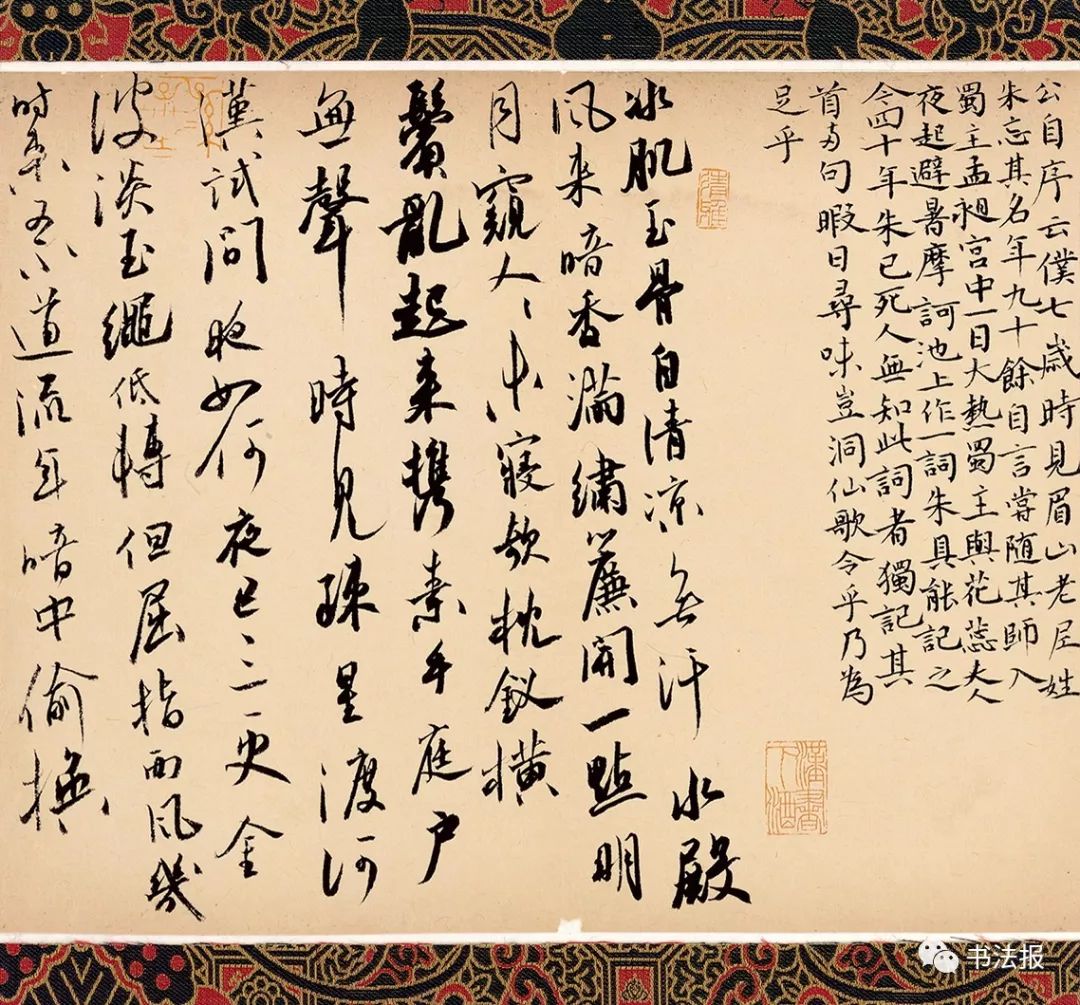 公自序云僕七歲時見眉山老尼姓
朱忘其名年九十餘自言嘗隨其師入
蜀主孟昶宮中一日大熱蜀主與花蕊夫人
夜起避暑摩訶池上作一詞朱具能記之
今四十年朱已死人無知此詞者獨記其
首两句暇日尋味豈洞仙歌令乎乃為
足乎
清雅
漢書下酒
冰肌玉骨自清凉無汗 水殿
風来暗香滿繡簾開一點明
月窺人〻未寢欹枕釵横
鬢亂起来携素手庭户
無聲 時見疎星渡河
漢試問夜如何夜已三更金
波淡玉繩低轉但屈指西風幾
时来又不道流年暗中偷換
书法报